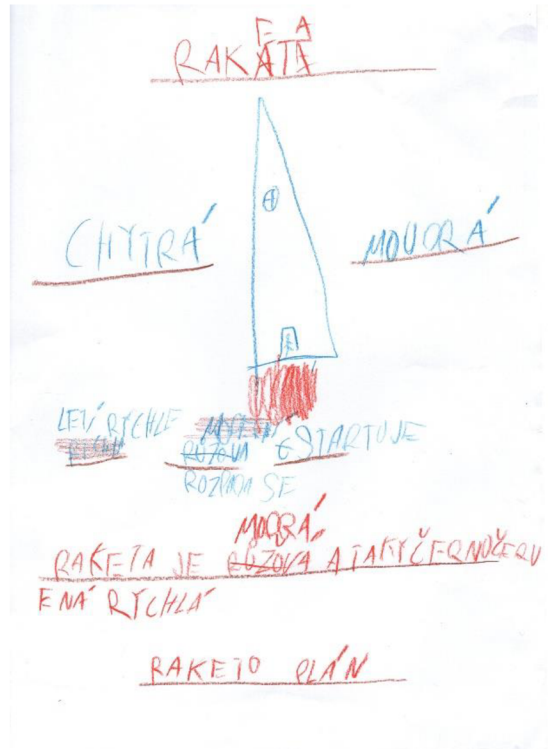 E A
RAKATA
CHYTRÁ
MOUDRÁ
LETÍ RYCHLE
RŮŽOVA
STARTUJE
ROZPADA SE
MODRÁ
RAKETA JE RŮŽOVA A TAKY ČERNOČERV
ENÁ RYCHLÁ
RAKETO PLÁN